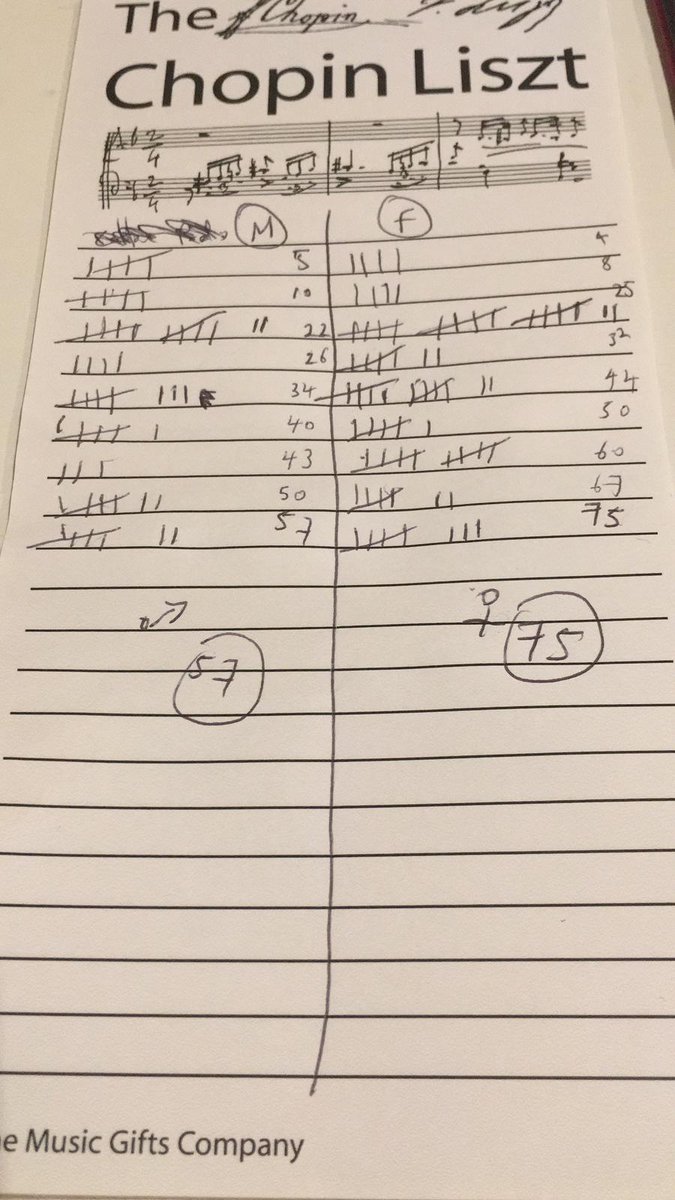 The Chopin
Chopin Liszt
M F
4
5 8
10 25
22 32
26 44
34 50
40 60
43 67
50 75
57
57 75
e Music Gifts Company